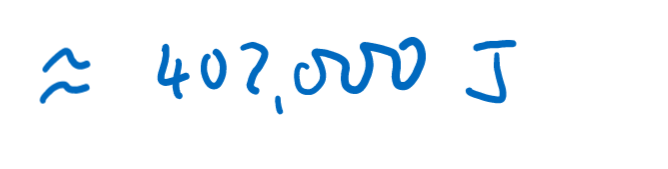 ≈ 407,000 J